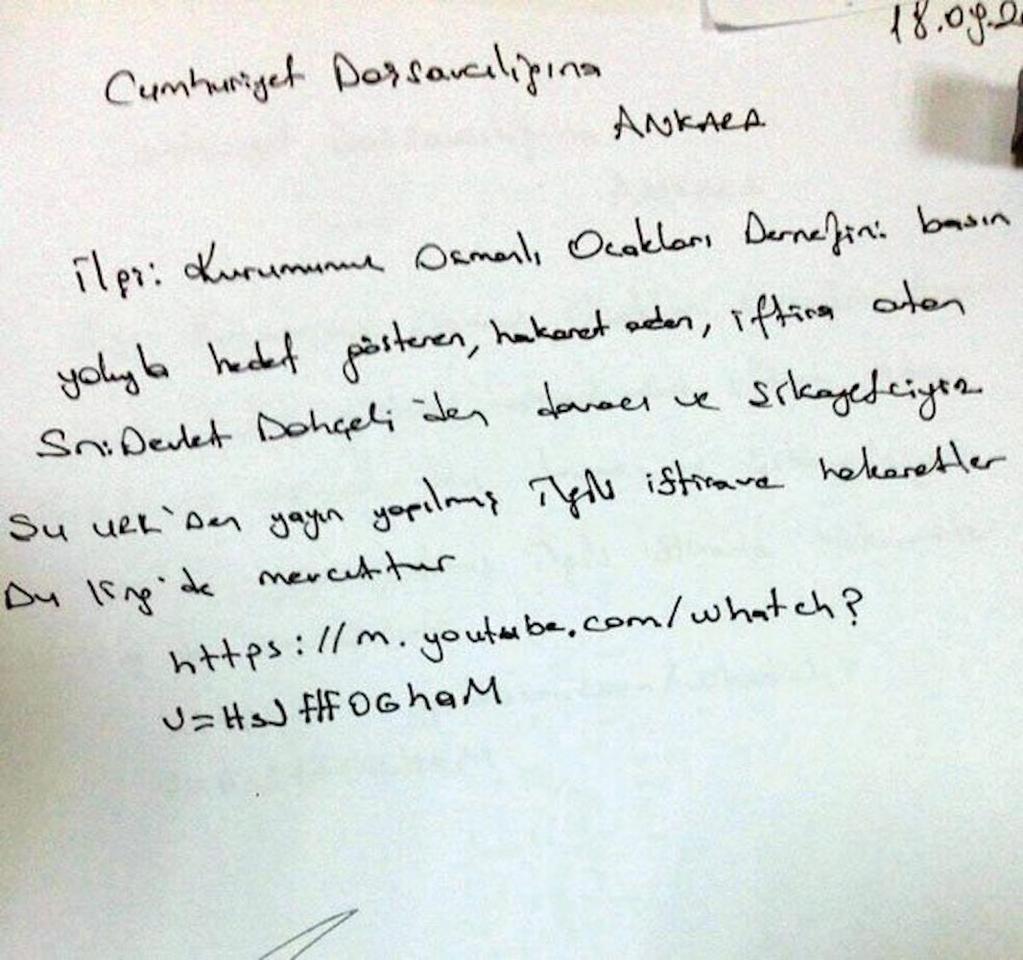 18.09.2
Cumhuriyet Başsavcılığına
ANKARA
İlgi: Kurumumuz Osmanlı Ocakları Derneğini basın
yoluyla hedef gösteren, hakaret eden, iftira atan
Sn: Devlet Bahçeli'den davacı ve şikayetciyiz
Şu URL'den yayın yapılmış ilgili iftira ve hakaretler
Bu ling'de mevcuttur
https://m.youtube.com/whatch?
v=HsJfHFOGhaM